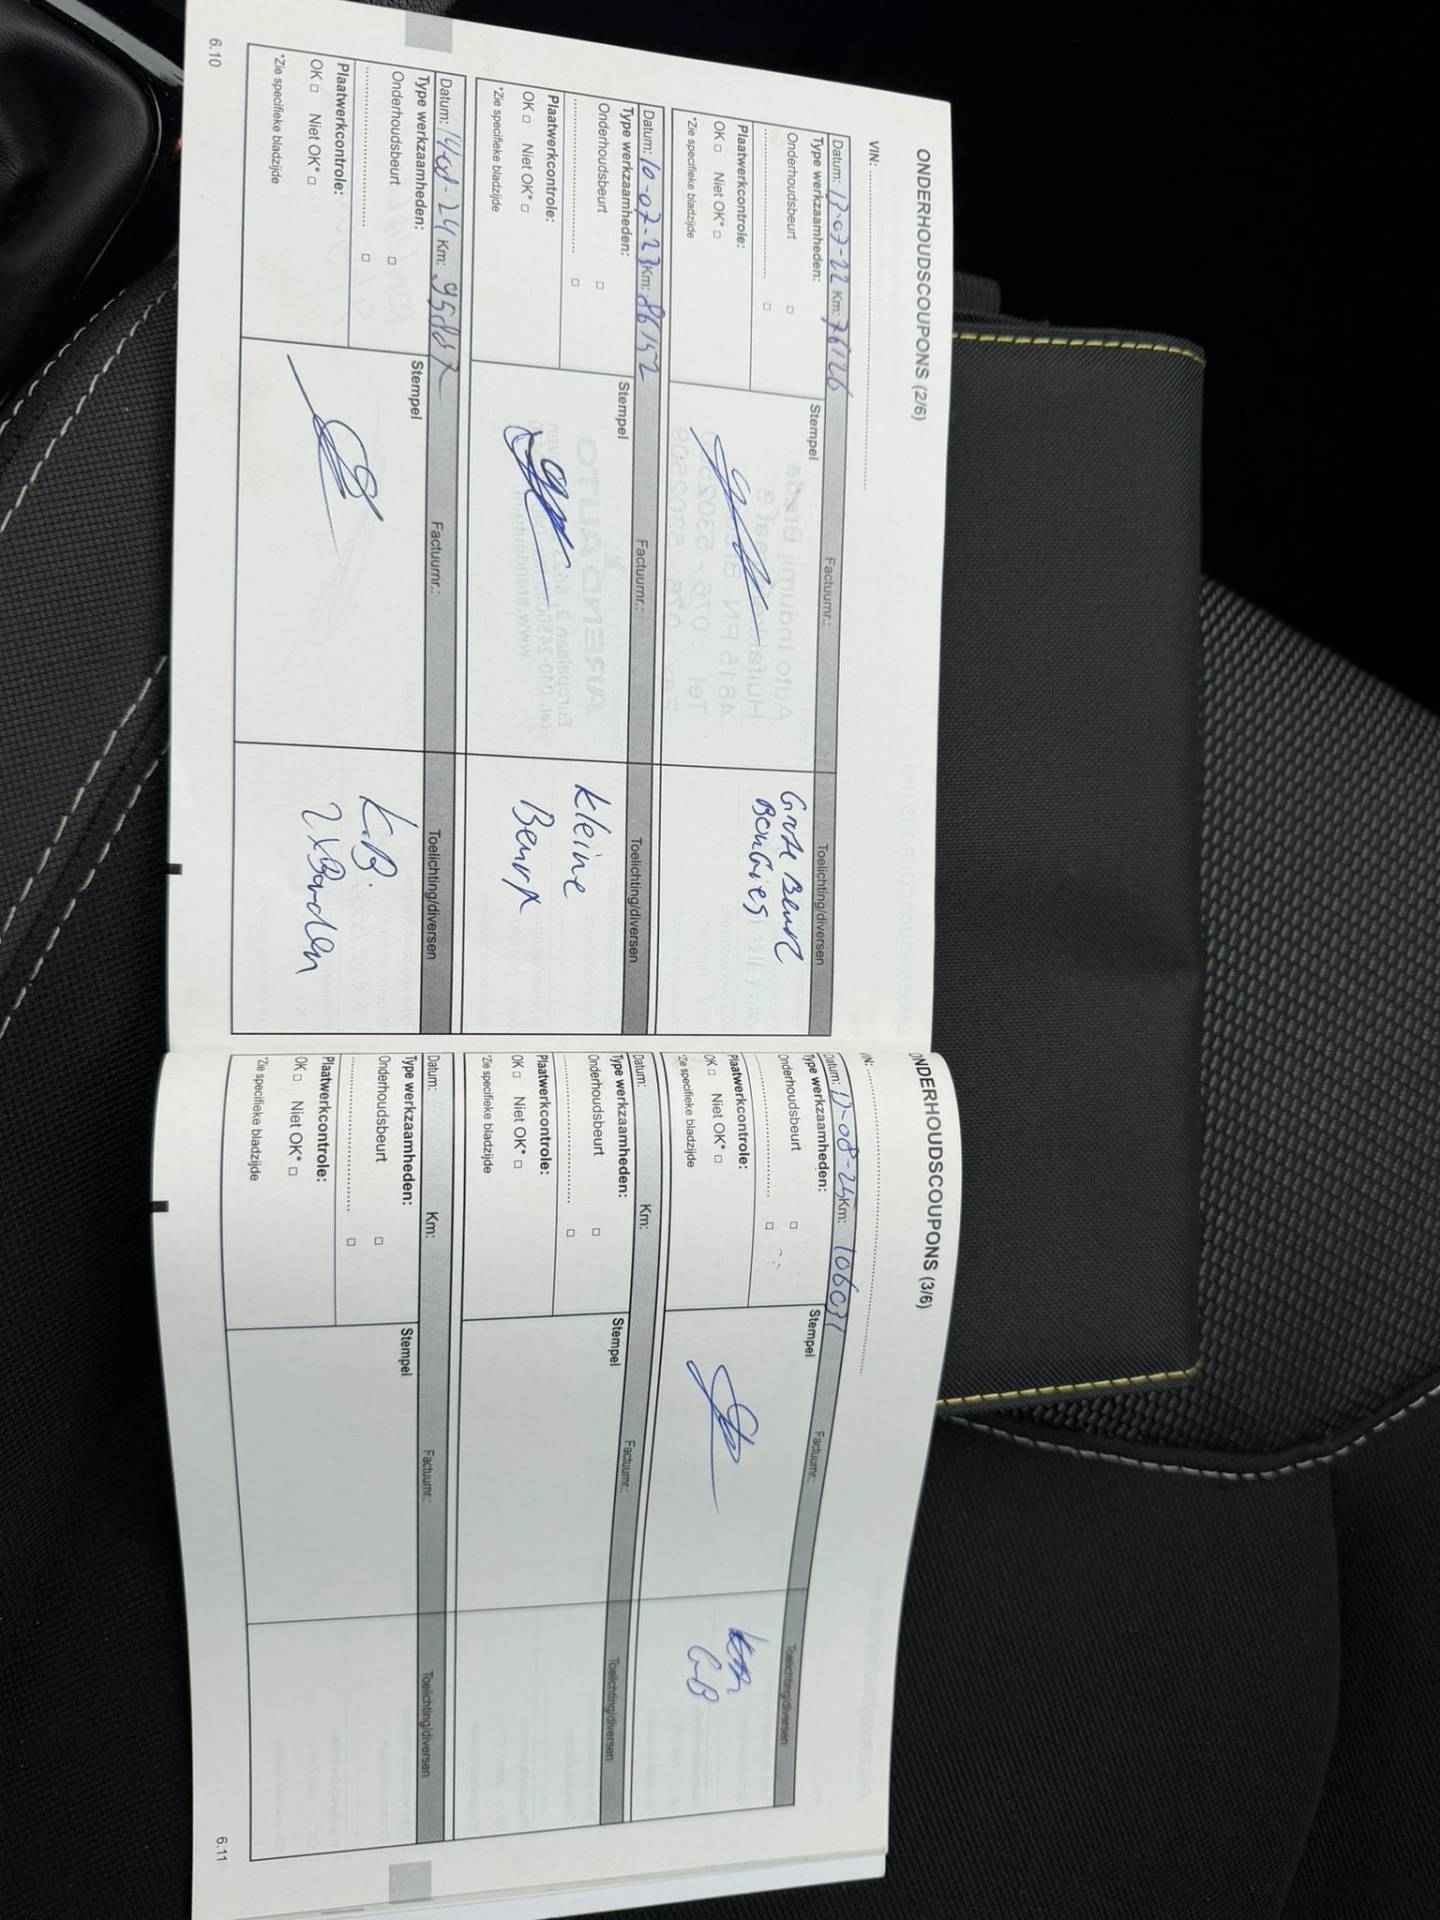 ONDERHOUDSCOUPONS (2/6)
VIN:
Datum: 12-07-22 Km: 76126
Factuurnr.:
Toelichting/diversen
Type werkzaamheden:
Stempel
Onderhoudsbeurt
Grote Beurt
Bougies
Plaatwerkcontrole:
OK □ Niet OK* □
*Zie specifieke bladzijde
Datum: 10-07-23 Km: 86152
Factuurnr.:
Toelichting/diversen
Type werkzaamheden:
Stempel
Onderhoudsbeurt
kleine
Beurt
Plaatwerkcontrole:
OK □ Niet OK* □
*Zie specifieke bladzijde
Datum: 14-08-24 Km:
Factuurnr.:
Toelichting/diversen
Type werkzaamheden:
Stempel
Onderhoudsbeurt
K.B.
2x Banden
Plaatwerkcontrole:
OK □ Niet OK* □
*Zie specifieke bladzijde
6.10
ONDERHOUDSCOUPONS (3/6)
IN:
Datum: 12-08-25 Km: 106031
Factuurnr.:
Toelichting/diversen
Type werkzaamheden:
Stempel
Onderhoudsbeurt
GB
Plaatwerkcontrole:
OK □ Niet OK* □
*Zie specifieke bladzijde
Datum: Km:
Factuurnr.:
Toelichting/diversen
Type werkzaamheden:
Stempel
Onderhoudsbeurt
Plaatwerkcontrole:
OK □ Niet OK* □
*Zie specifieke bladzijde
Datum: Km:
Factuurnr.:
Toelichting/diversen
Type werkzaamheden:
Stempel
Onderhoudsbeurt
Plaatwerkcontrole:
OK □ Niet OK* □
*Zie specifieke bladzijde
6.11